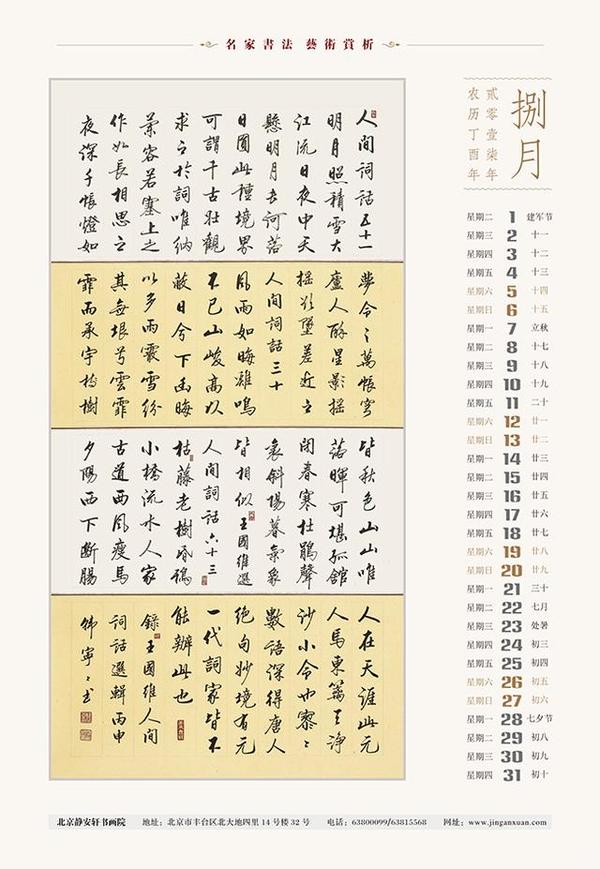 名家書法 藝術賞析
捌月
贰零壹柒年
农历丁酉年
人間詞話五十一
明月照積雪大
江流日夜中天
懸明月長河落
日圓此種境界
可謂千古壯觀
求之於詞唯納
蘭容若塞上之
作如長相思之
夜深千帳燈如
夢令之萬帳穹
廬人醉星影搖
搖欲墜差近之
人間詞話三十
風雨如晦雞鳴
不已山峻高以
蔽日兮下幽晦
以多雨霰雪紛
其無垠兮雲霏
霏而承宇樹樹
皆秋色山山唯
落暉可堪孤館
閉春寒杜鵑聲
裏斜陽暮氣象
皆相似 王國維選
人間詞話六十三
枯藤老樹昏鴉
小橋流水人家
古道西風瘦馬
夕陽西下斷腸
人在天涯此元
人馬東籬天淨
沙小令也寥〻
數語深得唐人
絕句妙境有元
一代詞家皆不
能辦此也
錄王國維人間
詞話選輯丙申
韓寧〻書
星期二 1 建军节
星期三 2 十一
星期四 3 十二
星期五 4 十三
星期六 5 十四
星期日 6 十五
星期一 7 立秋
星期二 8 十七
星期三 9 十八
星期四 10 十九
星期五 11 二十
星期六 12 廿一
星期日 13 廿二
星期一 14 廿三
星期二 15 廿四
星期三 16 廿五
星期四 17 廿六
星期五 18 廿七
星期六 19 廿八
星期日 20 廿九
星期一 21 三十
星期二 22 七月
星期三 23 处暑
星期四 24 初三
星期五 25 初四
星期六 26 初五
星期日 27 初六
星期一 28 七夕节
星期二 29 初八
星期三 30 初九
星期四 31 初十
北京静安轩书画院 地址：北京市丰台区北大地四里14号楼32号 电话：63800099/63815568 网址：www.jinganxuan.com